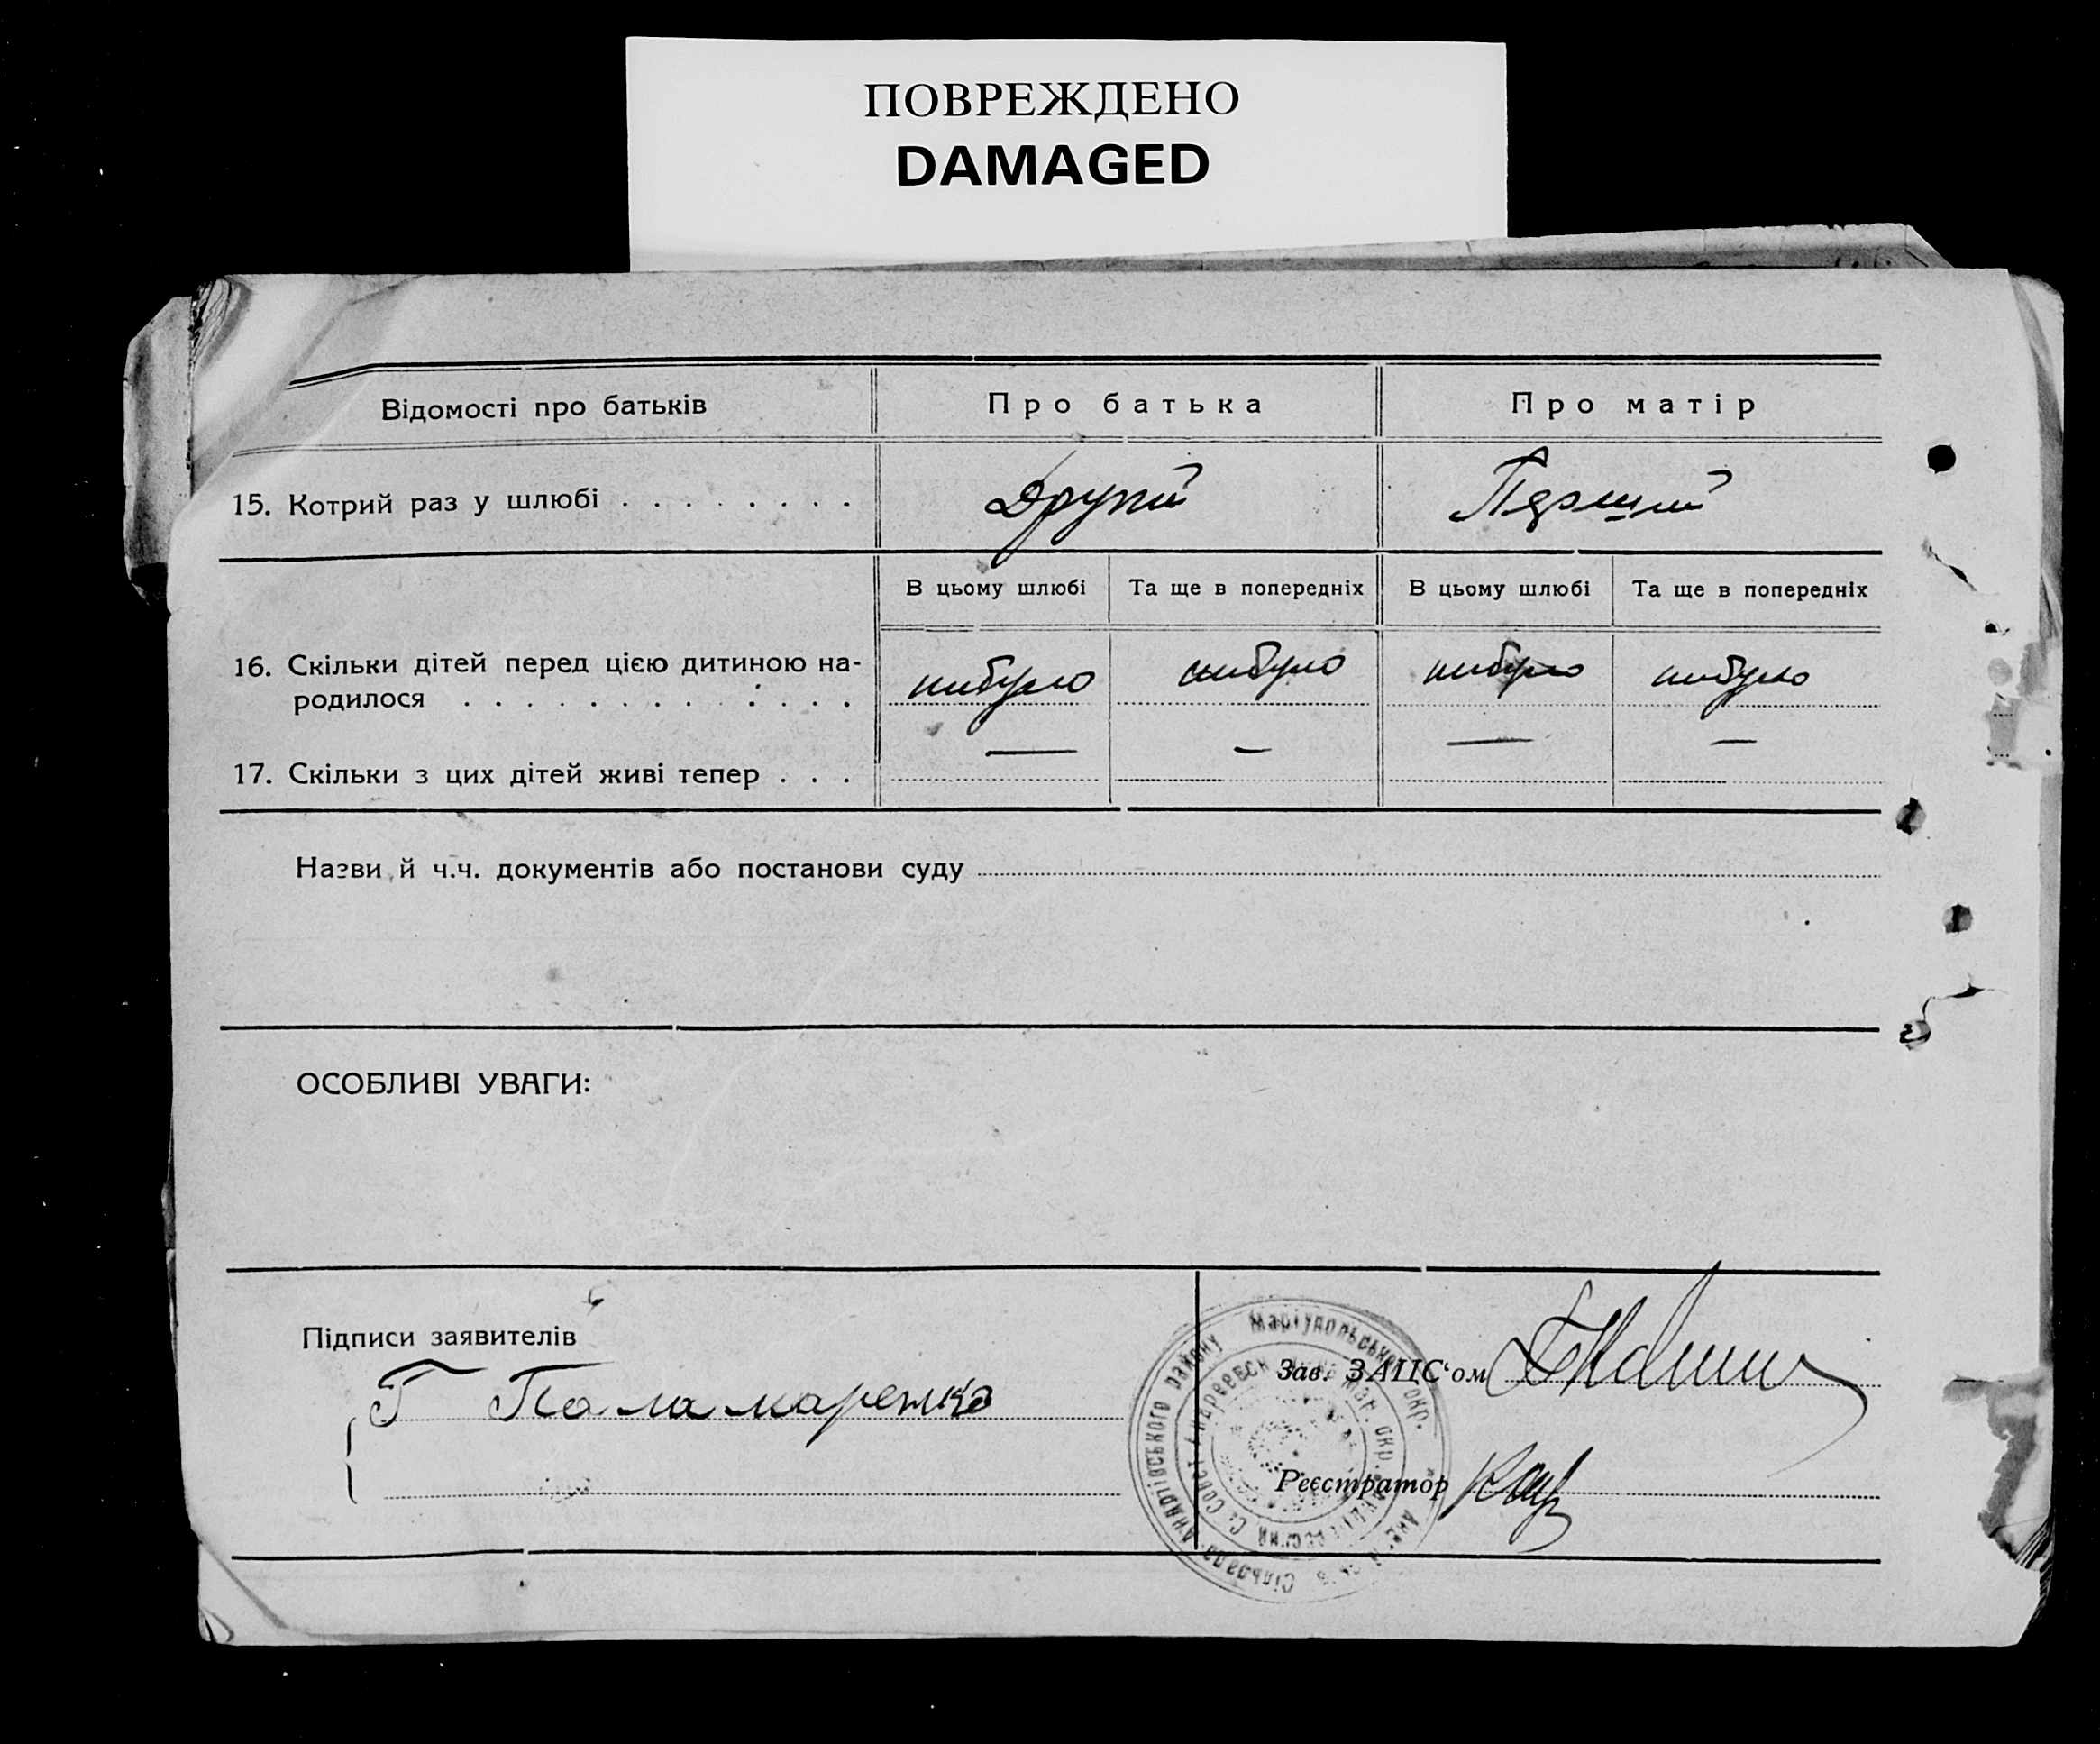 ПОВРЕЖДЕНО
DAMAGED
Відомості про батьків
Про батька
Про матір
15. Котрий раз у шлюбі . . . . . . . .
Другий
Перший
В цьому шлюбі
Та ще в попередніх
В цьому шлюбі
Та ще в попередніх
16. Скільки дітей перед цією дитиною на-
родилося . . . . . . . . . . . . .
нибуло
нибуло
нибуло
нибуло
17. Скільки з цих дітей живі тепер . . .
— — — —
Назви й ч.ч. документів або постанови суду
ОСОБЛИВІ УВАГИ:
Підписи заявителів
Г Паламаренко
Зав. ЗАЦС‘ом
Реєстратор
Сільрада Андріївського району Маріупольської окр.